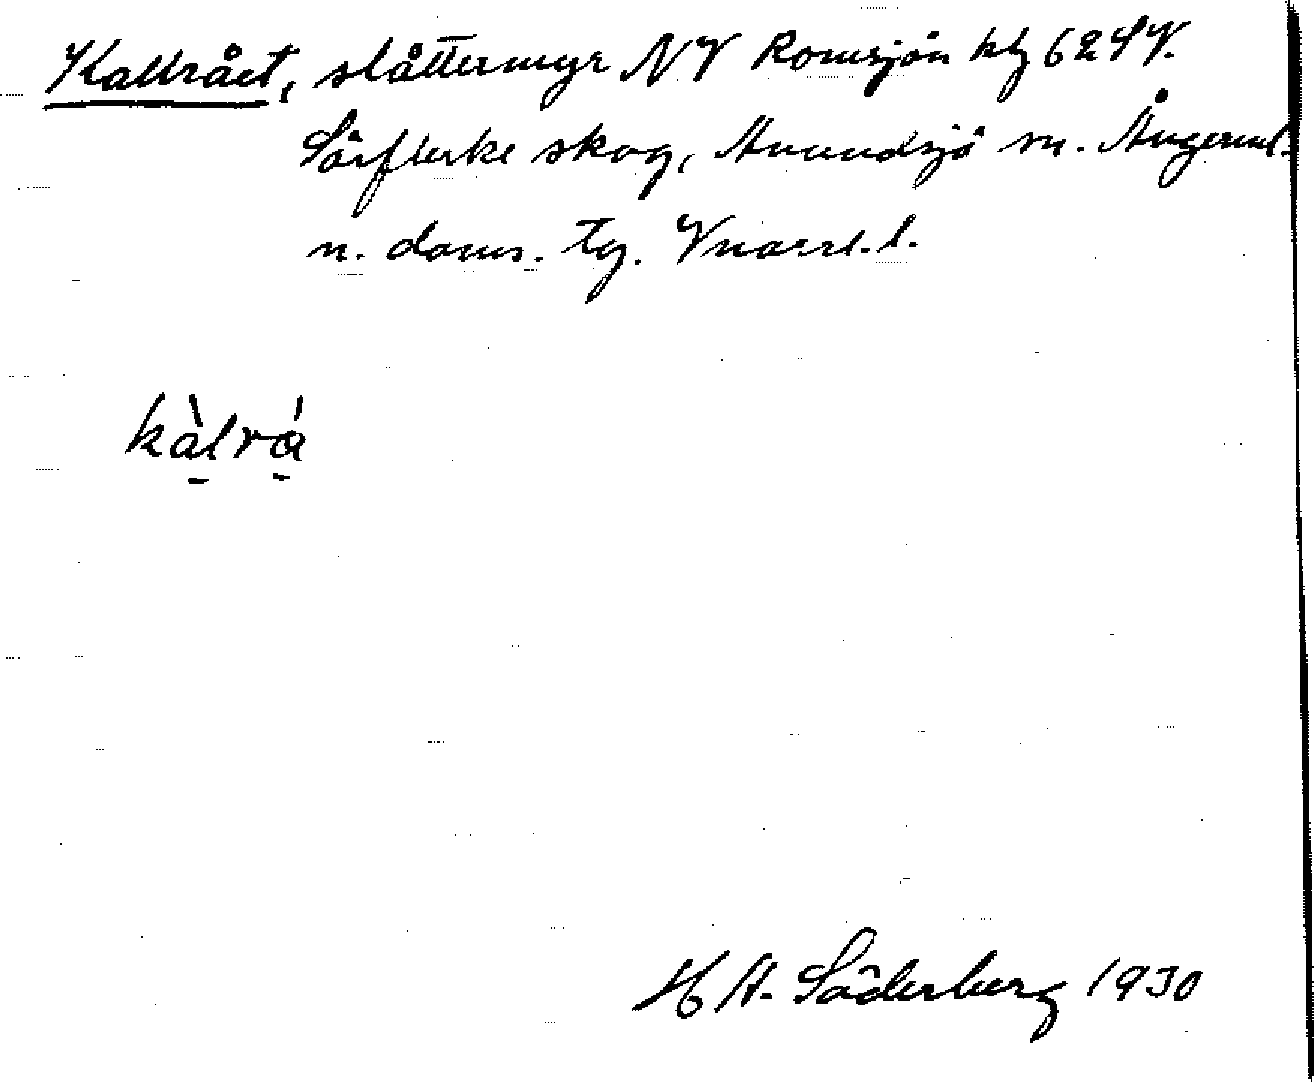 Kallrået, slåttermyr NV Romsjön kbl 62 SV.
Sörflärke skog, Anundsjö sn. Ångerml.
n. doms. tg. Vnorrl. l.
kàlrá
H A. Söderberg 1930